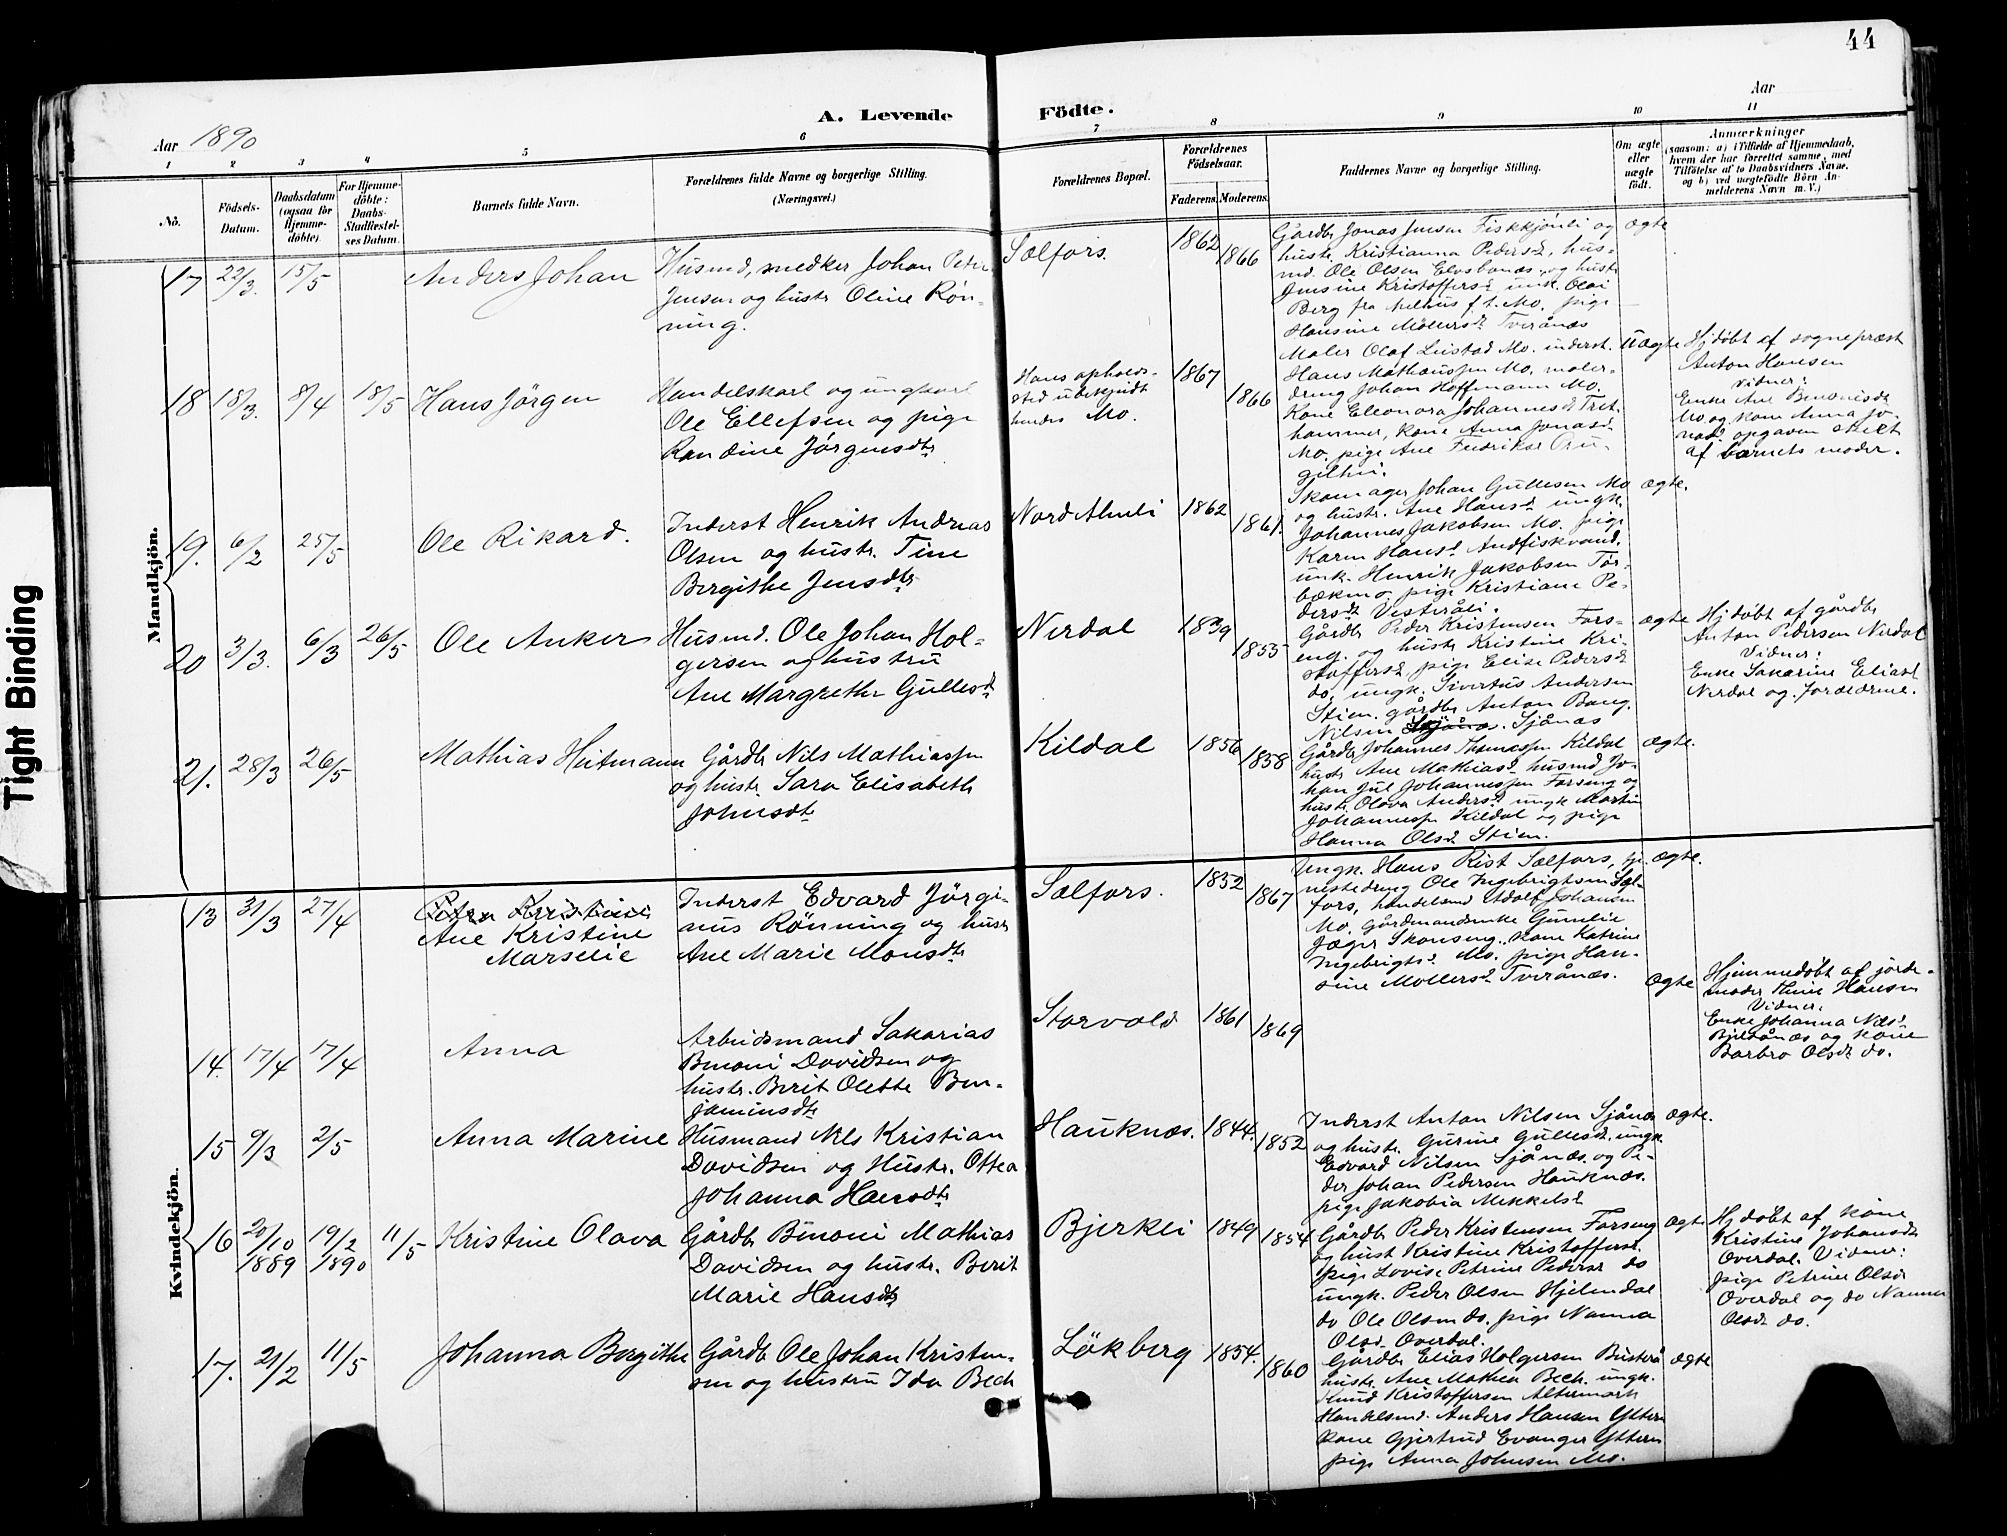 44
Aar 1890
A. Levende Födte.
Aar
1 2 3 4 5 6 7 8 9 10 11
Nö.
Födsels-
Datum.
Daabsdatum
(ogsaa for
Hjemme-
döbte).
For Hjemme-
döbte:
Daabs-
Stadfæstel-
ses Datum.
Barnets fulde Navn.
Forældrenes fulde Navne og borgerlige Stilling.
(Næringsvei.)
Forældrenes Bopæl.
Forældrenes
Födselsaar.
Faderens. Moderens.
Faddernes Navne og borgerlige Stilling.
Om ægte
eller
uægte
födt.
Anmærkninger
(saasom: a) i Tilfælde af Hjemmedaab,
hvem der har forrettet samme, med
Tilföielse af to Daabsvidners Navne,
og b) ved uægtefödte Börn An-
melderens Navn m. V.)
Mandkjön.
17 22/3. 15/5
Anders Johan
Husmd, snedker Johan Peter
Jensen og hustr Oline Røn-
ning.
Sælfors.
1862
1866
Gårdbr Jonas Jensen Fiskkjønli og
hustr. Kristianna Pedersd, hus-
md. Ole Olsen og hustr
Jensine Kristoffersd. unk. Olai
Berg fra Melhus f.t. Mo. pige
Hansine Möllersd Tverånæs
ægte
18 18/3. 8/4 18/5
Hans Jörgen
Handelskarl og ungkarl
Ole Ellefsen og pige
Randine Jörgensdtr
Hans opholds-
sted ubekjendt
hendes Mo.
1867
1866
Maler Olaf Leistad Mo. inderst.
Hans Mathæussen Mo, maler-
dreng Johan Hoffmann Mo.
Kone Eleonora Johannesd Tret-
hammer, kone Anna Jonasd
Mo. pige Ane Fredrikse
Uægte
Hj døbt af sognepræst
Anton Hansen
Vidner:
Enke Ane Benonisdt
Mo og kone Anna Jo-
nasd. opgaven skeet
af barnets moder.
19. 6/2 25/5
Ole Rikard.
Inderst Henrik Andreas
Olsen og hustr. Tine
Bergithe Jensdtr
Nord Almli
1862
1861.
Skomager Johan Gullesen Mo
og hustr. Ane Hansd ungk.
Johannes Jakobsen Mo. pige
Karen Hansd. Andfiskvand.
unk. Henrik Jakobsen Tør-
bækmo pige Kristiane Pe-
dersdt Vesteråli.
ægte.
20 3/3. 6/3 26/5
Ole Anker
Husmd. Ole Johan Hol-
gersen og hustru
Ane Margrethe Gullesd.
Nerdal
1859
1855
Gårdbr Peder Kristensen Fors-
eng. og hustr Kristine Kri-
stoffersd. pige Elise Pedersd
do, ungk. Sivertus Andersen
Stien. gårdbr Anton Bang
Nilsen Sjånæs. Sjånæs
ægte
Hj døbt af gårdbr
Anton Pedersen Nerdal
Vidner:
Enke Sakarine Eliasd
Nerdal og forældrene.
21. 28/3 26/5
Mathias Heitmann
Gårdbr Nils Mathiassen
og hustr. Sara Elisabeth
Johnsdtr
Kildal
1856
1858
Gårdbr Johannes Thomassen Kildal
hustr Ane Mathiasd. husmd Jo-
han Jul Johannessen Forseng og
hustr. Olava Andersd ungk Martin
Johannessen Kildal og pige
Hanna Olsd Stien.
ægte.
Kvindekjön.
13 31/3 27/4
Petra Kristine
Ane Kristine
Marselie
Inderst Edvard Jörgi-
nus Rønning og hustr
Ane Marie Monsdtr
Sælfors.
1852
1867
Ungk. Hans Rist Sælfors, tje-
nestedreng Ole Ingebrigtsen Sæl-
fors, handelsmd Adolf Johansen
Mo. Gårdmandsenke Gunelie
Jæger Skonseng. kone Katrine
Ingebrigtsd. Mo. pige Han-
sine Mollersd Tverånæs.
ægte.
14. 17/4 17/4
Anna
Arbeidsmand Sakarias
Benoni Davidsen og
hustr. Berit Olette Ben-
jaminsdtr
Storvold
1861
1869
ægte
Hjemmedøbt af jorde-
moder Thine Hansen
Vidner:
Enke Johanna Nilsd
og kone
Barbro Olsdt do.
15 9/3 2/5
Anna Marine
Husmand Nils Kristian
Davidsen og Hustr. Ottea
Johanna Hansdtr
Hauknæs.
1844.
1852
Inderst Anton Nilsen Sjånæs
og hustr. Gurine Gullesdt. ungk
Edvard Nilsen Sjånæs. og Pe-
der Johan Pedersen Hauknæs.
pige Jakobia Mikkelsd
ægte.
16 20/10 1889 19/2 1890 11/5
Kristine Olava
Gårdbr Benoni Mathias
Davidsen og hustr. Berit
Marie Hansdtr
Bjerkli
1849
1854
Gårdbr Peder Kristensen Forseng
og hust Kristine Kristoffersd.
pige Lovise Petrine Pedersd do
ungk. Peder Olsen Hjelmdal
do Ole Olsen do. pige Nanna
Olsd. Overdal.
ægte
Hj døbt af kone
Kristine Johansdt
Overdal. Vidner:
pige Petrine Olsdt
Overdal og do Nanna
Olsdt do.
17. 21/2 11/5
Johanna Bergithe
Gårdbr Ole Johan Kristen-
sen og hustru Ida Bech
Lökberg
1854.
1860
Gårdbr Elias Holgersen Busterå
hustr. Ane Mathea Bech. ungk.
Knud Kristoffersen Altermark
Handelsmd. Anders Hansen Yttern
kone Gjertrud Evanger Yttern
pige Anna Johnsen Mo.
ægte
Tight Binding